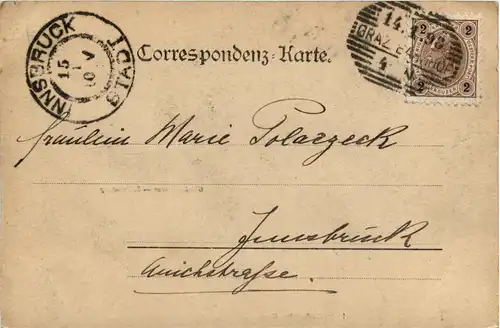 INNSBRUCK STADT
15
Correspondenz-Karte.
14.
GRAZ
2 2
2 2
Fräulein Marie Polaczeck
Innsbruck
Anichstraße.